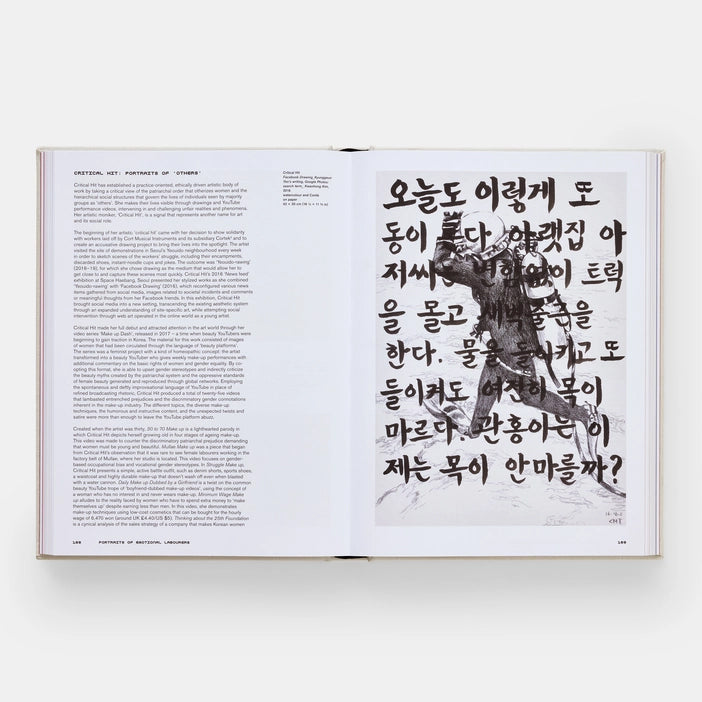 CRITICAL HIT: PORTRAITS OF 'OTHERS'
Critical Hit has established a practice-oriented, ethically driven artistic body of
work by taking a critical view of the patriarchal order that otherizes women and the
hierarchical social structures that govern the loss of individuals seen by majority
groups as 'others'. She makes their lives visible through drawings and YouTube
performance videos, intervening in and challenging unfair realities and phenomena.
Her artistic moniker, 'Critical Hit', is a signal that represents another name for art
and its social role.
The beginning of her artistic 'critical hit' came with her decision to show solidarity
with workers laid off by Cort Musical Instruments and its subsidiary Cortek² and to
create an accusative drawing project to bring their lives into the spotlight. The artist
visited the site of demonstrations in Seoul's Yeouido neighbourhood every week
in order to sketch scenes of the workers' struggle, including their encampments,
discarded shoes, instant-noodle cups and pikes. The outcome was 'Yeouido-rawing'
for which she chose drawing as the medium that would allow her to
get close to and capture these scenes most quickly. Critical Hit's 2016 'News feed'
exhibition at Space Haebang, Seoul presented her stylized works as she combined
'Yeouido-rawing' with 'Facebook Drawing' (2016), which reconfigured various news
items gathered from social media, images related to societal incidents and comments
or meaningful thoughts from her Facebook friends. In this exhibition, Critical Hit
brought social media into a new setting, transcending the existing aesthetic system
through an expanded understanding of site-specific art, while attempting social
intervention through web art operated in the online world as a young artist.
Critical Hit made her full debut and attracted attention in the art world through her
video series 'Make up Dash', released in 2017 – a time when beauty YouTubers were
beginning to gain traction in Korea. The material for this work consisted of images
of women that had been circulated through the language of 'beauty platforms'.
The series was a feminist project with a kind of homeopathic concept: the artist
transformed into a beauty YouTuber who gives weekly make-up performances with
additional commentary on the basic rights of women and gender equality. By co-
opting this format, she is able to upset gender stereotypes and indirectly criticize
the beauty myths created by the patriarchal system and the oppressive standards
of female beauty generated and reproduced through global networks. Employing
the spontaneous and deftly improvisational language of YouTube in place of
refined broadcasting rhetoric, Critical Hit produced a total of twenty-five videos
that lambasted entrenched prejudices and the discriminatory gender connotations
inherent in the make-up industry. The different topics, the diverse make-up
techniques, the humorous and instructive content, and the unexpected twists and
satire were more than enough to leave the YouTube platform abuzz.
Created when the artist was thirty, 30 to 70 Make up is a lighthearted parody in
which Critical Hit depicts herself growing old in four stages of ageing make-up.
This video was made to counter the discriminatory patriarchal prejudice demanding
that women must be young and beautiful. Mullae Make up was a piece that began
from Critical Hit's observation that it was rare to see female labourers working in the
factory belt of Mullae, where her studio is located. This video focuses on gender-
based occupational bias and vocational gender stereotypes. In Struggle Make up,
Critical Hit presents a simple, active battle outfit, such as denim shorts, sports shoes,
a waistcoat and highly durable make-up that doesn't wash off even when blasted
with a water cannon. Daily Make up Dubbed by a Girlfriend is a twist on the common
beauty YouTube trope of 'boyfriend-dubbed makeup videos', using the concept of
a woman who has no interest in and never wears make-up. Minimum Wage Make
up alludes to the reality faced by women who have to spend extra money to 'make
themselves up' despite earning less than men. In this video, she demonstrates
make-up techniques using low-cost cosmetics that can be bought for the hourly
wage of 6,470 won (around UK £4.40/US $5). Thinking about the 25th Foundation
is a cynical analysis of the sales strategy of a company that makes Korean women
188 PORTRAITS OF EMOTIONAL LABOURERS
Critical Hit
Facebook Drawing,
Yeo's writing, Google Photos:
search term,
2016
watercolour and Conte
on paper
오늘도 이렇게 또
동이 튼다 아랫집 아
저씨는 변함없이 트럭
을 몰고 새벽 출근을
한다. 물을 들이키고 또
들이켜도 여전히 목이
마르다. 관홍아는 이
제는 목이 안마를까?
189